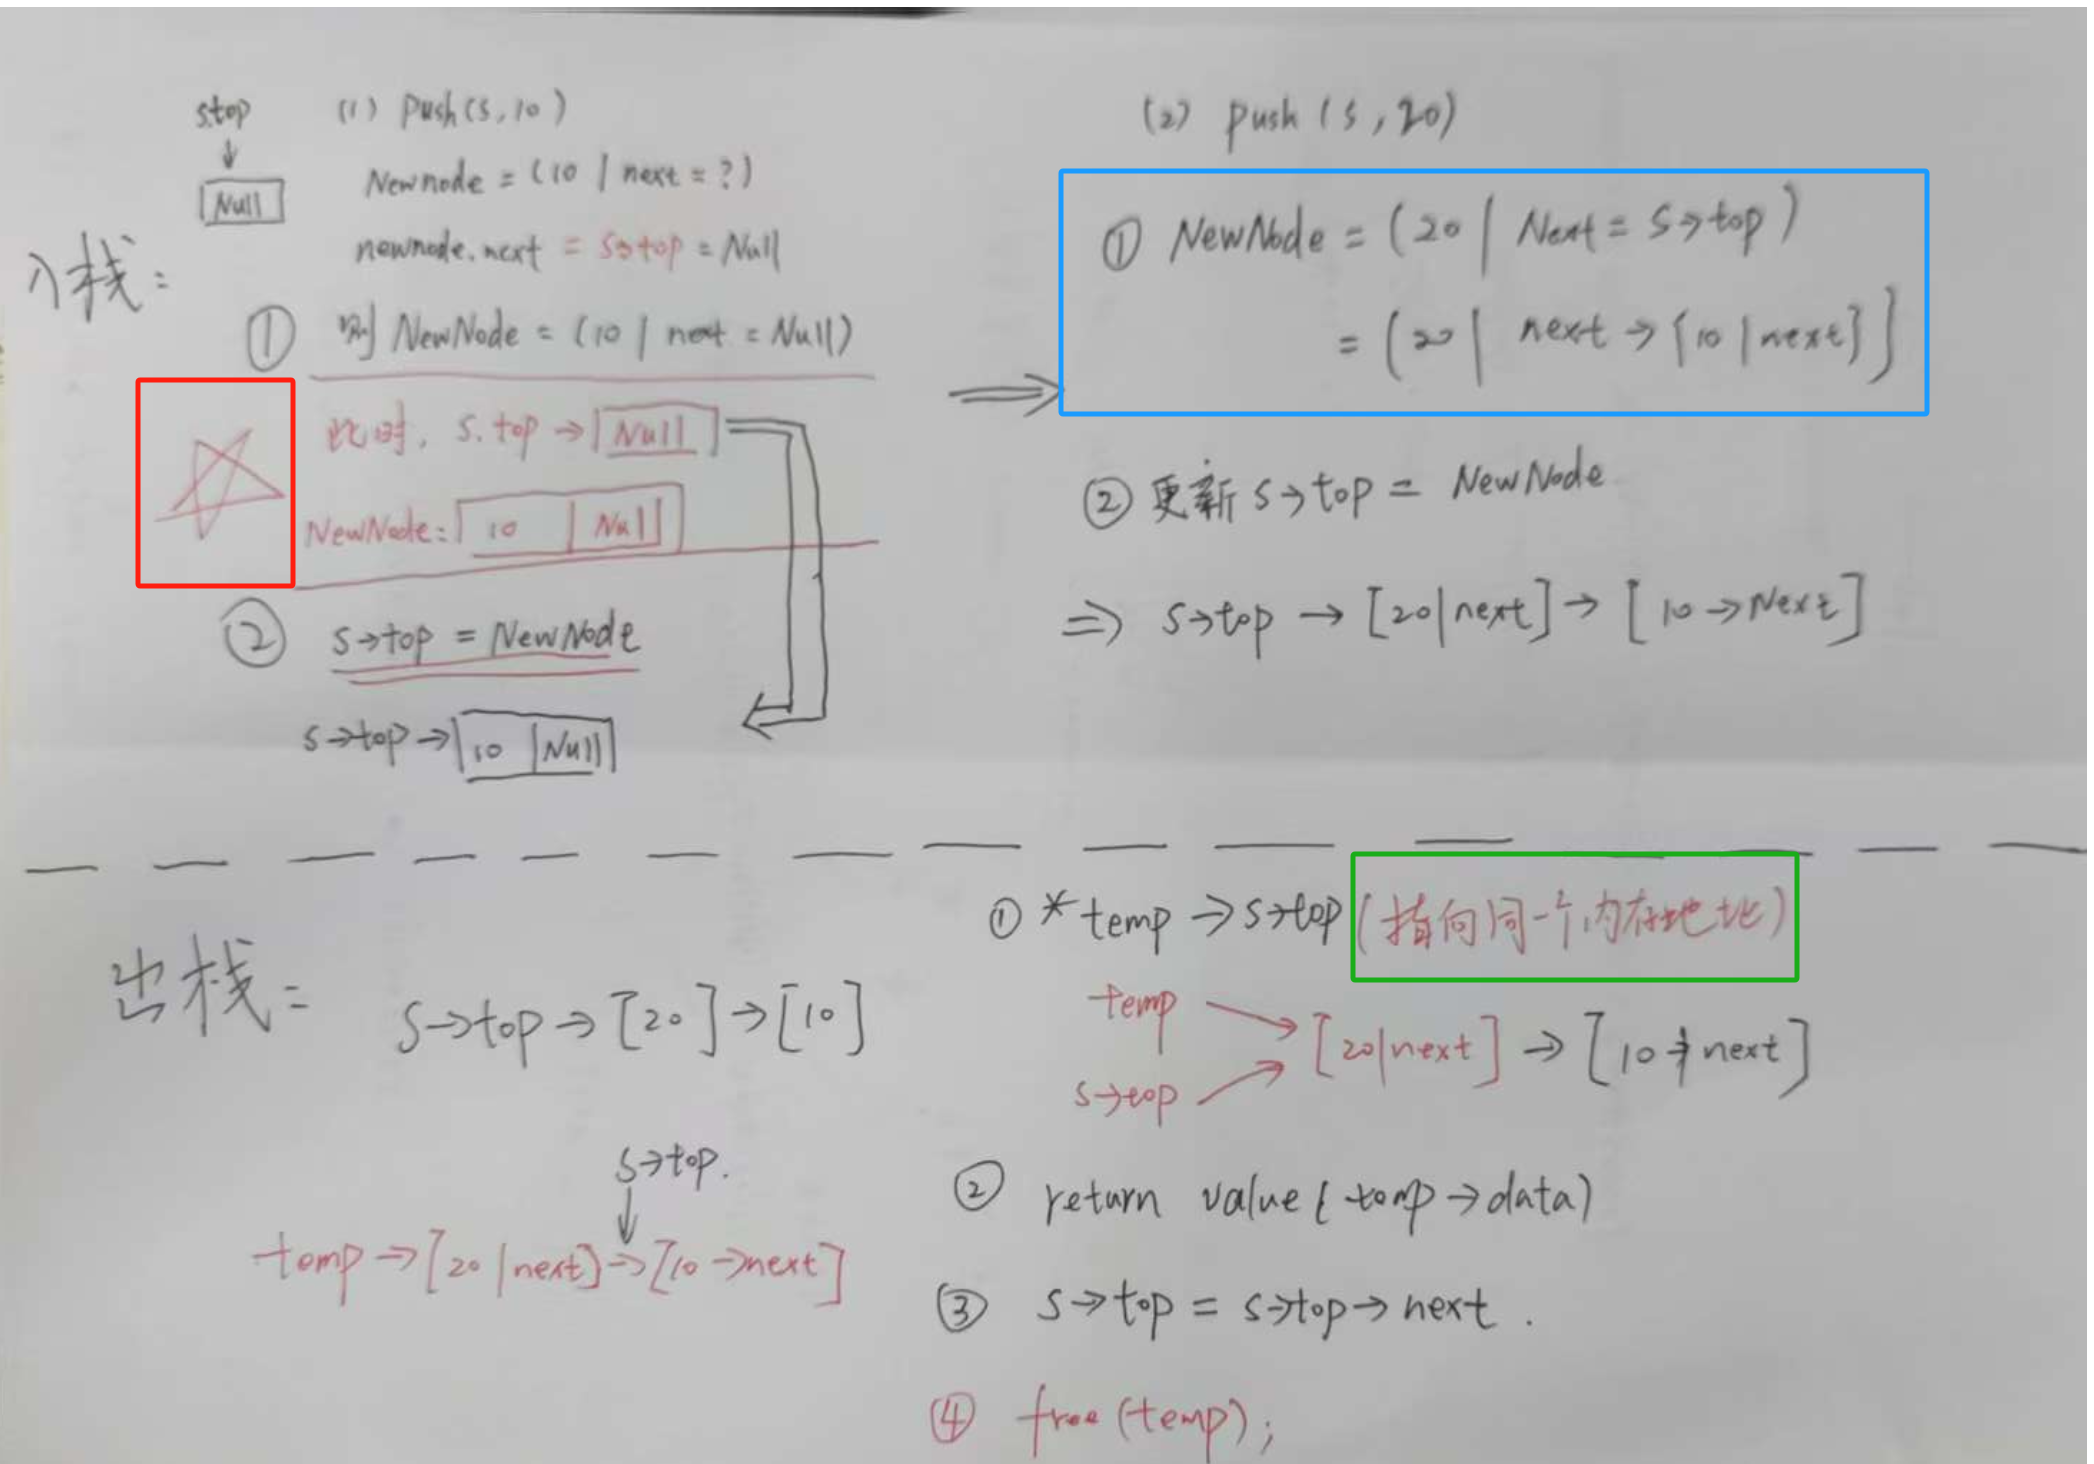 入栈:
s.top
↓
Null
(1) Push(s,10)
Newnode = (10 | next = ?)
newnode.next = s→top = Null
① 则 NewNode = (10 | next = Null)
此时, s.top → | Null |
NewNode: | 10 | Null |
② s→top = NewNode
s→top → | 10 | Null |
⇒
(2) push (s, 20)
① NewNode = (20 | Next = s→top)
= (20 | next → {10 | next}]
② 更新 s→top = NewNode
⇒ s→top → [20|next] → [10 → Next]
出栈:
s→top → [20] → [10]
s→top.
↓
temp → [20 | next] → [10 → next]
① *temp → s→top (指向同一个内存地址)
temp
s→top
[20|next] → [10 | next]
② return value (temp → data)
③ s→top = s→top → next .
④ free (temp);